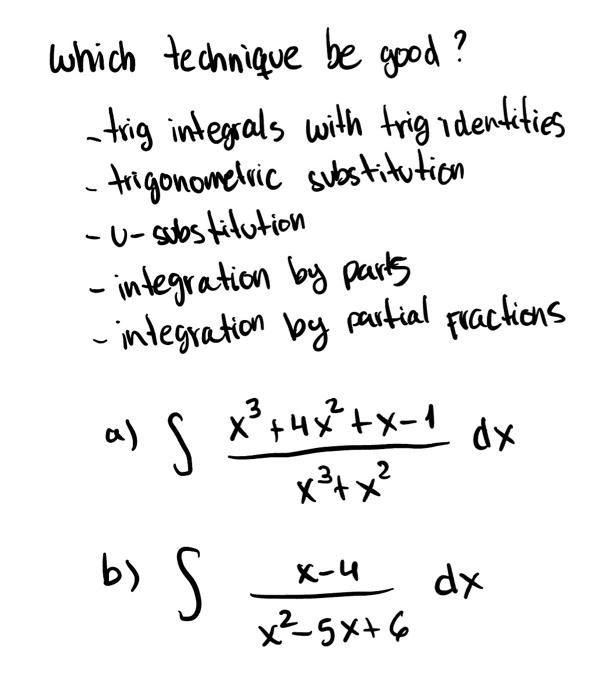 which technique be good?
- trig integrals with trig identities
- trigonometric substitution
- u-substitution
- integration by parts
- integration by partial fractions
a) ∫ (x³+4x²+x-1)/(x³+x²) dx
b) ∫ (x-4)/(x²-5x+6) dx